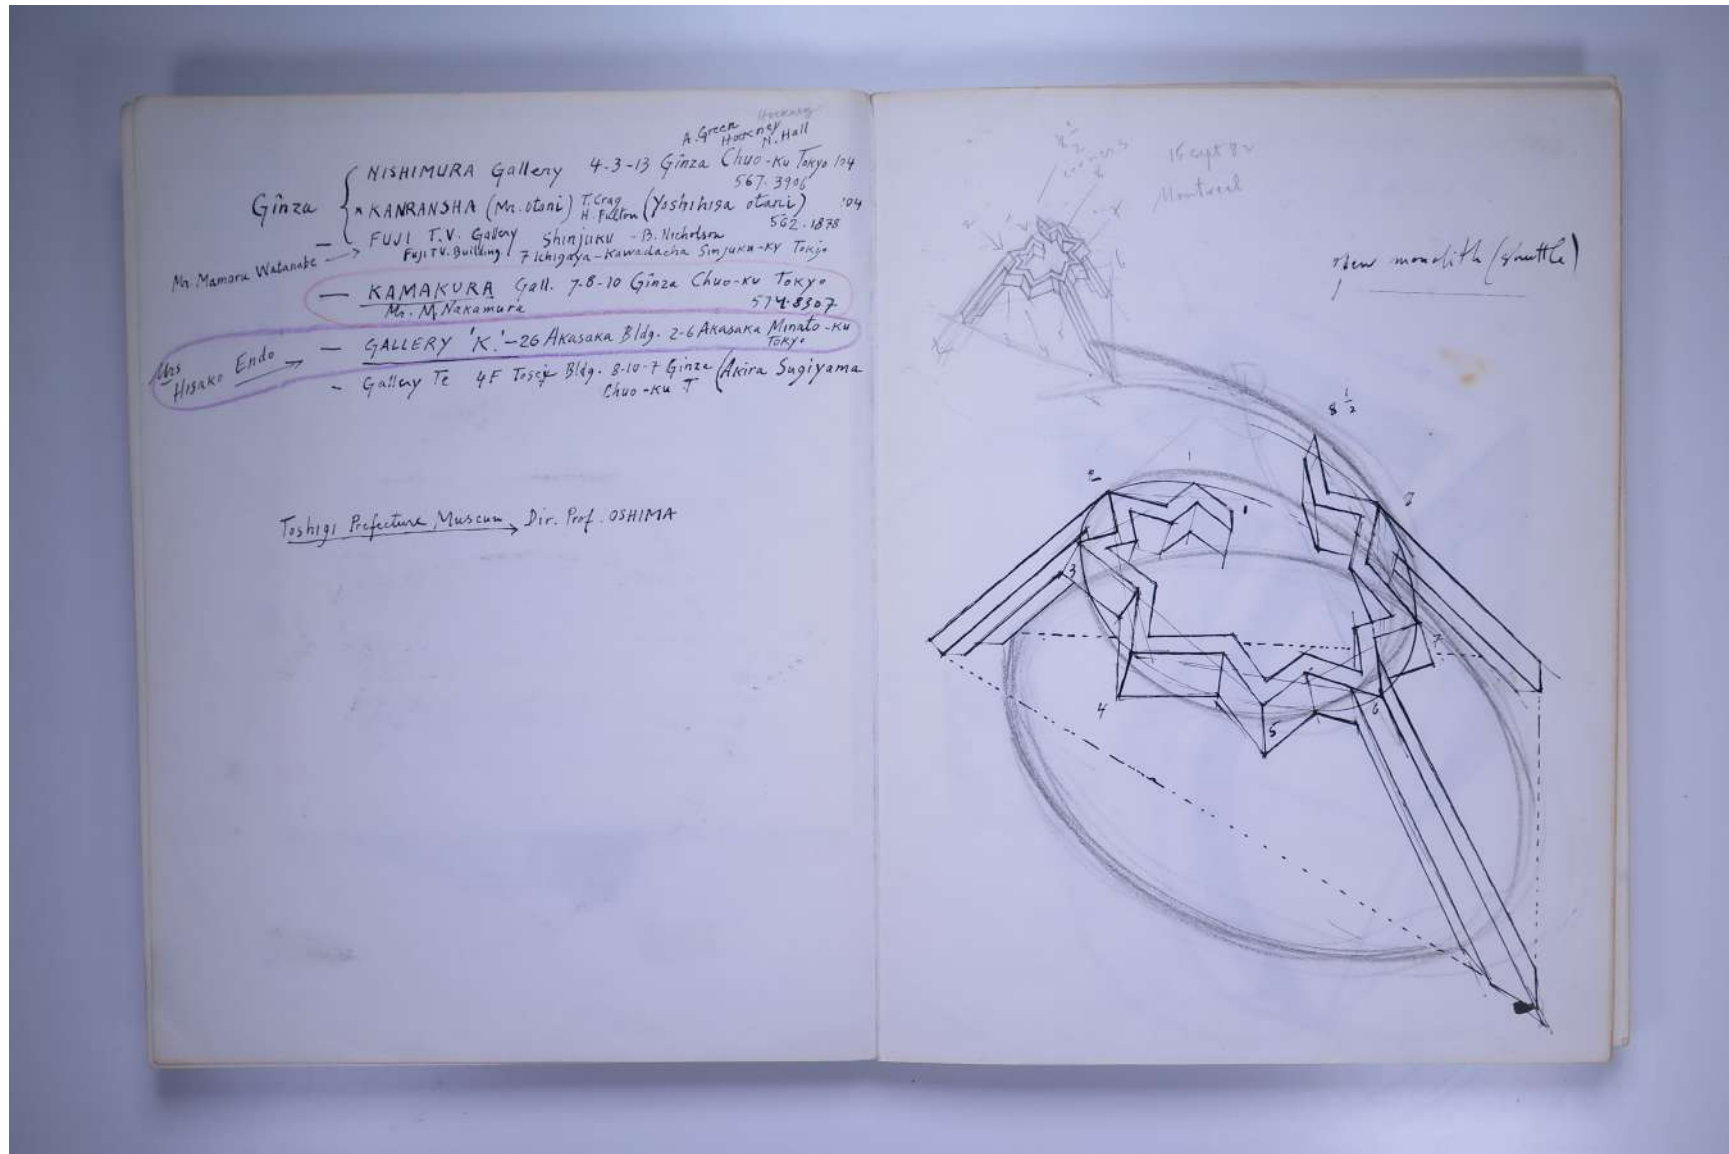 Hockney
A. Green
Hockney
N. Hall
NISHIMURA Gallery 4-3-13 Ginza Chuo-Ku Tokyo 104
567.3906
Ginza
KANRANSHA (Mr. Otani) T. Crag
H. Fulton (Yoshihiga Otani) 104
562.1878
FUJI T.V. Gallery Shinjuku - B. Nicholson
Mr. Mamoru Watanabe → Fuji TV. Building 7 Ichigaya-Kawadacha Sinjuku-Ky Tokyo
— KAMAKURA Gall. 7-8-10 Ginza Chuo-Ku Tokyo
Mr. M. Nakamura 574.8307
Mrs
Hisako Endo → — GALLERY 'K.' - 26 Akasaka Bldg. 2-6 Akasaka Minato-Ku
Tokyo
- Gallery Te 4F Bldg. 8-10-7 Ginza (Akira Sugiyama
Chuo-Ku T
Toshigi Prefecture Museum → Dir. Prof. OSHIMA
15 Sept 82
Montreal
new monolith (shuttle)
8 1/2
2
1
8
1
3
7
4
5
6